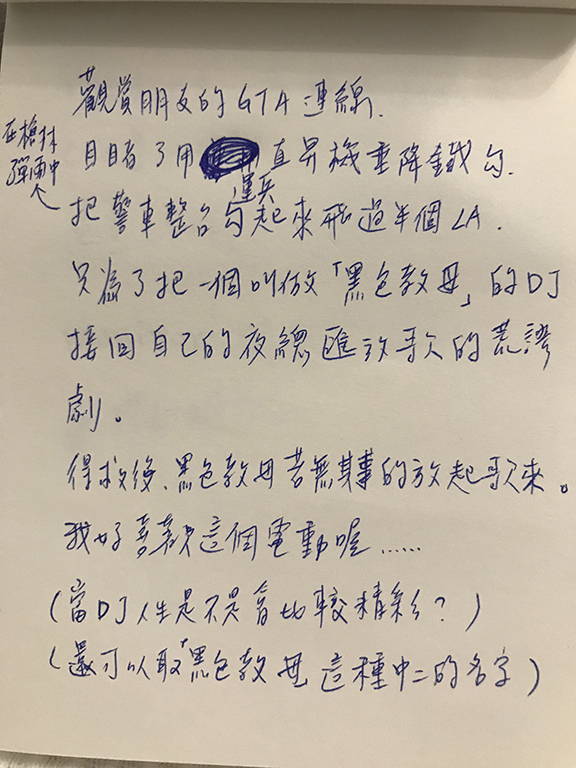 觀賞朋友的GTA連線.
目睹了用直昇機垂降鐵勾.
在槍林
彈雨中
運兵
把警車整台勾起來飛過半個LA.
只為了把一個叫做「黑色教母」的DJ
接回自己的夜總匯放歌的荒謬
劇。
得救後、黑色教母若無其事的放起歌來。
我好喜歡這個電動喔……
(當DJ人生是不是會比較精彩?)
(還可以取「黑色教母」這種中二的名字)